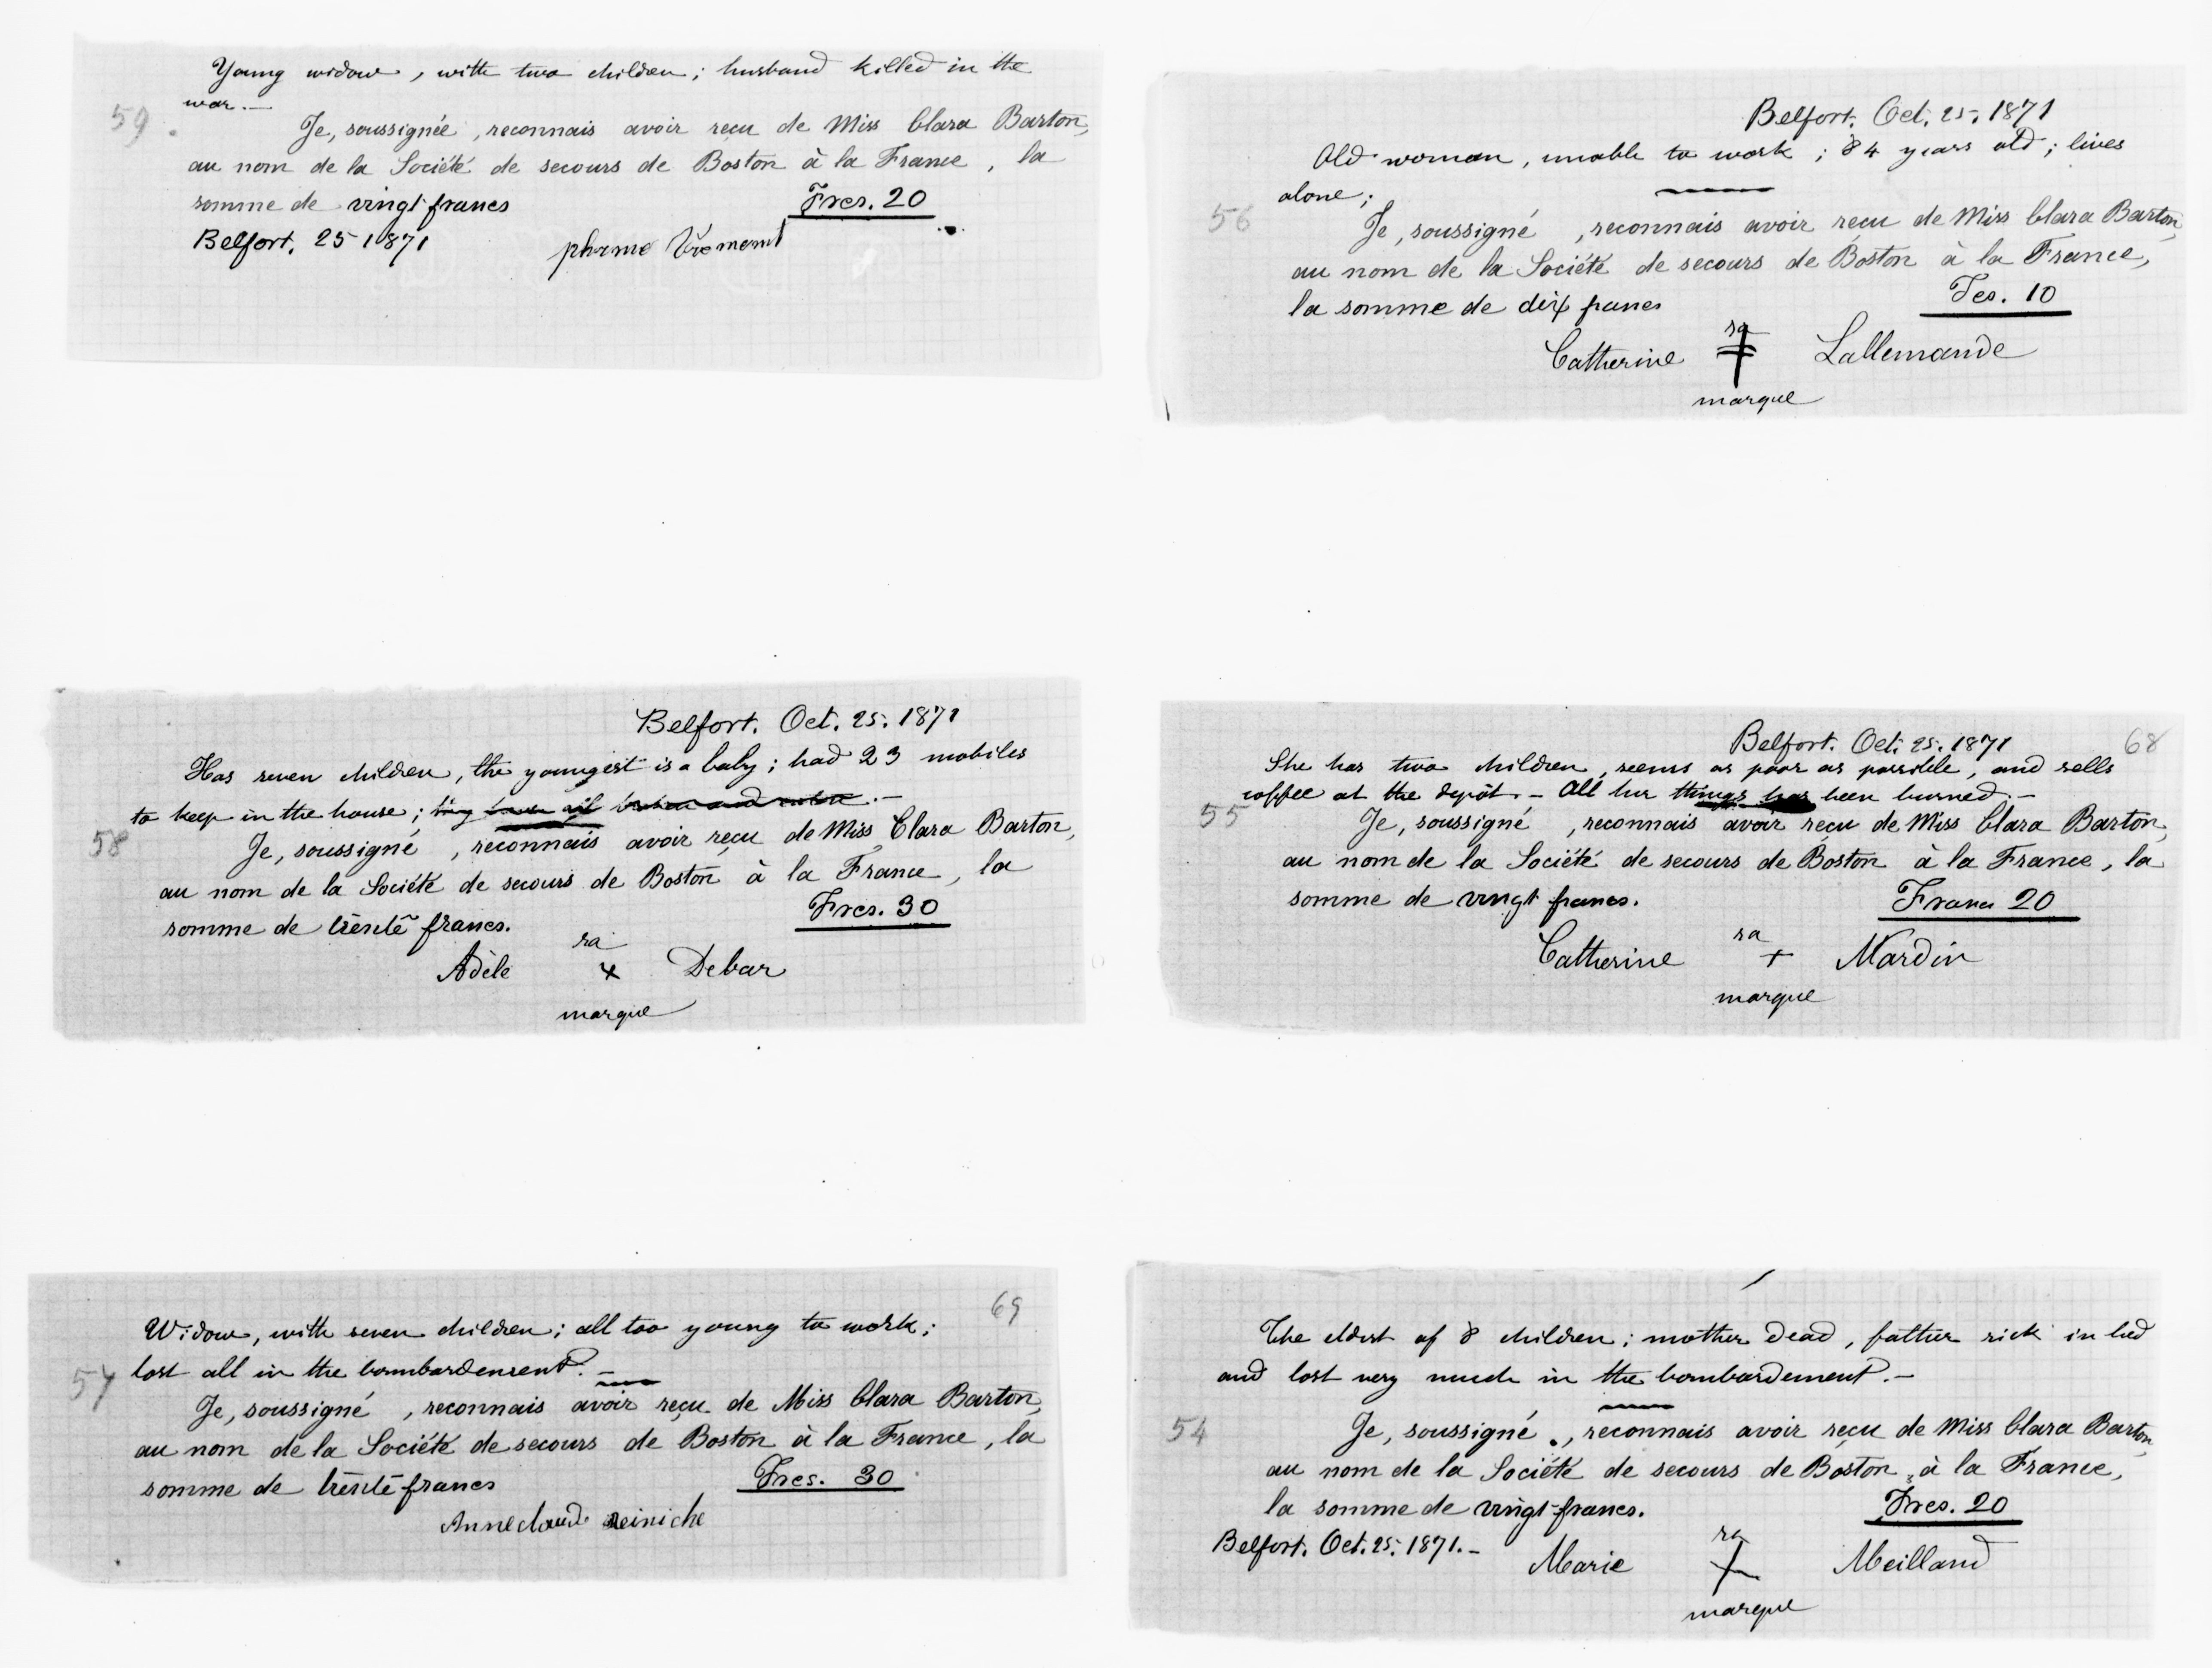 Young widow, with two children; husband killed in the
war.—
59.
Je, soussignée, reconnais avoir reçu de Miss Clara Barton,
au nom de la Société de secours de Boston à la France, la
somme de vingt francs
Frcs. 20
Belfort, 25 1871
Belfort. Oct. 25. 1871
Old woman, unable to work; 84 years old; lives
alone;
56
Je, soussigné, reconnais avoir reçu de Miss Clara Barton,
au nom de la Société de secours de Boston à la France,
la somme de dix francs
Fcs. 10
sa
Catherine ‡ Lallemande
marque
Belfort. Oct. 25. 1871
Has seven children, the youngest is a baby; had 23 mobiles
to keep in the house;
58
Je, soussigné, reconnais avoir reçu de Miss Clara Barton,
au nom de la Société de secours de Boston à la France, la
somme de trente francs.
Frcs. 30
sa
Adèle x Debar
marque
Belfort. Oct. 25. 1871
68
She has two children, seems as poor as possible, and sells
coffee at the depôt.— All her things has been burned.—
55
Je, soussigné, reconnais avoir reçu de Miss Clara Barton,
au nom de la Société de secours de Boston à la France, la
somme de vingt francs.
Francs 20
sa
Catherine + Mardin
marque
69
Widow, with seven children; all too young to work;
lost all in the bombardement.—
57
Je, soussigné, reconnais avoir reçu de Miss Clara Barton,
au nom de la Société de secours de Boston à la France, la
somme de trente francs
Frcs. 30
The eldest of 8 children; mother dead, father sick in bed
and lost very much in the bombardement.—
54
Je, soussigné, reconnais avoir reçu de Miss Clara Barton,
au nom de la Société de secours de Boston à la France,
la somme de vingt francs.
Frcs. 20
Belfort. Oct. 25. 1871.—
sa
Marie + Meilland
marque